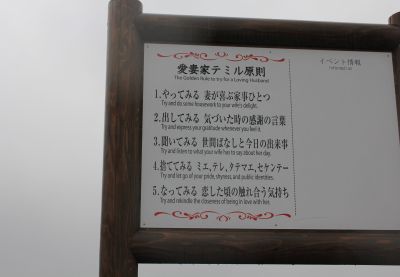 愛妻家テミル原則
The Golden Rule to try for a Loving Husband
1.やってみる 妻が喜ぶ家事ひとつ
Try and do some housework to your wife's delight.
2.出してみる 気づいた時の感謝の言葉
Try and express your gratitude whenever you feel it.
3.聞いてみる 世間ばなしと今日の出来事
Try and listen to what your wife has to say about her day.
4.捨ててみる ミエ、テレ、タテマエ、セケンテー
Try and let go of your pride, shyness, and public identities.
5.なってみる 恋した頃の触れ合う気持ち
Try and rekindle the closeness of being in love with her.
イベント情報